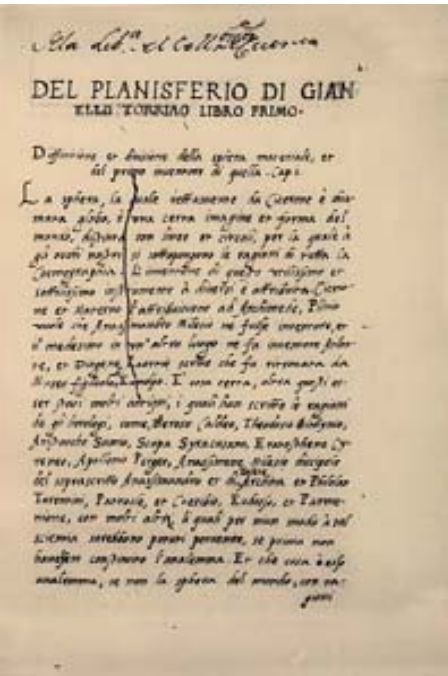 Ala Lib.ª del Coll.º de Cuenca
DEL PLANISFERIO DI GIAN
ELLO TORRIAO LIBRO PRIMO.
Diffinitione et divisione della sphera materiale, et
del primo inventore di quella. Cap.
La sphera, la quale da Cicerone è
globo, è una certa imagine et forma del
mondo, con linee et circoli, per la quale à
si sottopongono le ragioni di tutta la
Cosmographia. L'inventione di questo utilissimo et
sottilissimo instrumento à diversi è attribuita. Cicero-
ne et l'attribuiscono ad Archimede, Plinio
vuole che Anassimandro Milesio ne fusse inventore, et
il medesimo in un' altro luogo ne fa inventore
et Diogene Laertio scrive che fu ritrovata da
Museo. È cosa certa, oltra questi es-
ser stati molti antiqui, i quali han scritto le ragioni
de gli horologi, come, Beroso Caldeo, Theodosio
Aristarcho Samio, Scopa Syracusano, Eratosthene Cy-
reneo, Apollonio Pergeo, Anassimene Milesio discipulo
del soprascritto Anassimandro et Archita et Philolao
Tarentini, et Eudosso, et Parme-
nione, con molti altri, li quali per niun modo à tal
scientia sarebbono potuti pervenire, se prima non
havessero l'analemma. Et che cosa è esso
analemma, se non la sphera del mondo, con ra-
gioni